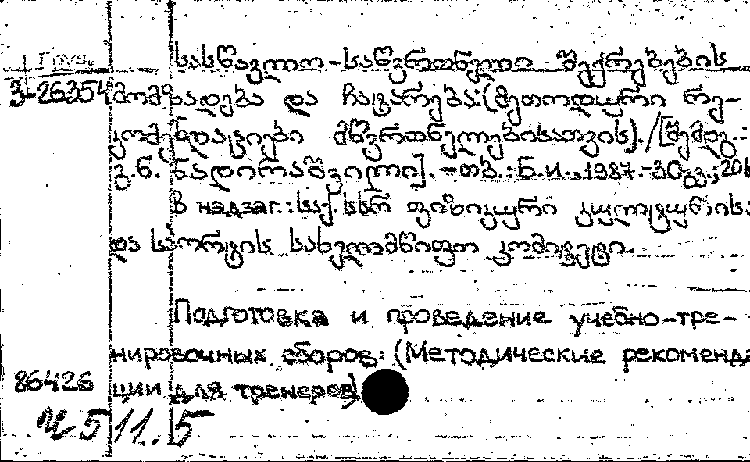 Груз.
სასწავლო-საწვრთნელი შეკრებების
3-26354 მომზადება და ჩატარება:(მეთოდური რე-
კომენდაციები მწვრთნელებისათვის)./[შემდგ.:
გ.ნ. ნადირაშვილი].-თბ.:Б.и.,1987.-30გვ.;20
В надзаг.:საქ.სსრ ფიზიკური კულტურისა
და სპორტის სახელმწიფო კომიტეტი.
Подготовка и проведение учебно-тре-
нировочных сборов: (Методические рекоменда
86426 ции для тренеров)
11.5